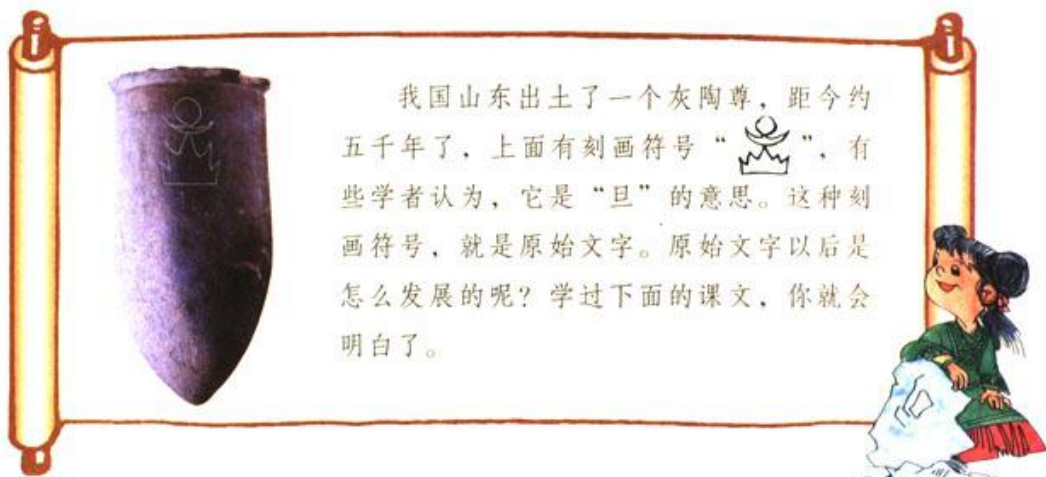 我国山东出土了一个灰陶尊，距今约
五千年了，上面有刻画符号“ ”，有
些学者认为，它是“旦”的意思。这种刻
画符号，就是原始文字。原始文字以后是
怎么发展的呢？学过下面的课文，你就会
明白了。